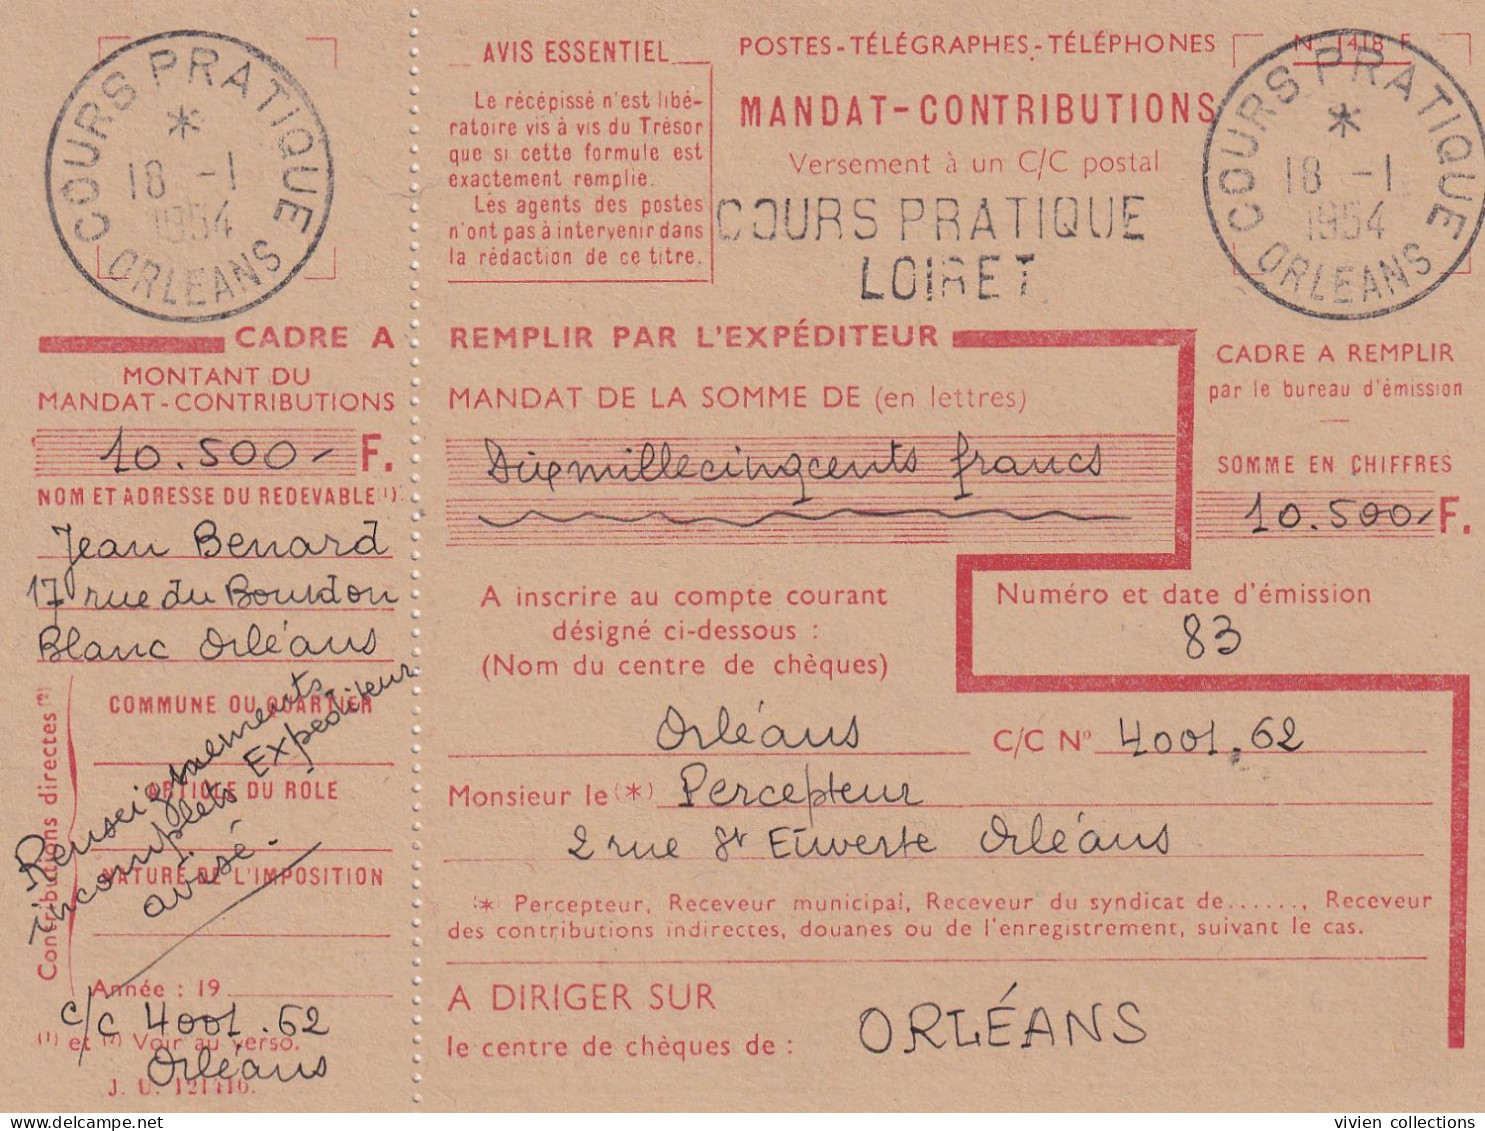 COURS PRATIQUE
*
18 -1
1954
ORLEANS
AVIS ESSENTIEL
Le récépissé n'est libé-
ratoire vis à vis du Trésor
que si cette formule est
exactement remplie.
Les agents des postes
n'ont pas à intervenir dans
la rédaction de ce titre.
POSTES-TÉLÉGRAPHES-TÉLÉPHONES
N° 1418 F
MANDAT-CONTRIBUTIONS
Versement à un C/C postal
COURS PRATIQUE
LOIRET
COURS PRATIQUE
*
18 -1
1954
ORLEANS
CADRE A REMPLIR PAR L'EXPÉDITEUR
MONTANT DU
MANDAT-CONTRIBUTIONS
10.500- F.
NOM ET ADRESSE DU REDEVABLE (1)
Jean Benard
17 rue du Bourdon
Blanc Orléans
COMMUNE OU QUARTIER
ARTICLE DU ROLE
NATURE DE L'IMPOSITION
Contributions directes (2)
Renseignements
incomplets Expéditeur
avisé.
Année : 19
c/c 4001.62
(1) et (2) Voir au verso.
Orléans
J. U. 121416.
MANDAT DE LA SOMME DE (en lettres)
Dix mille cinq cents francs
CADRE A REMPLIR
par le bureau d'émission
SOMME EN CHIFFRES
10.500- F.
A inscrire au compte courant
désigné ci-dessous :
(Nom du centre de chèques)
Numéro et date d'émission
83
Orléans C/C N° 4001.62
Monsieur le (*) Percepteur
2 rue St Euverte Orléans
(*) Percepteur, Receveur municipal, Receveur du syndicat de......, Receveur
des contributions indirectes, douanes ou de l'enregistrement, suivant le cas.
A DIRIGER SUR
le centre de chèques de : ORLÉANS
vivien collections